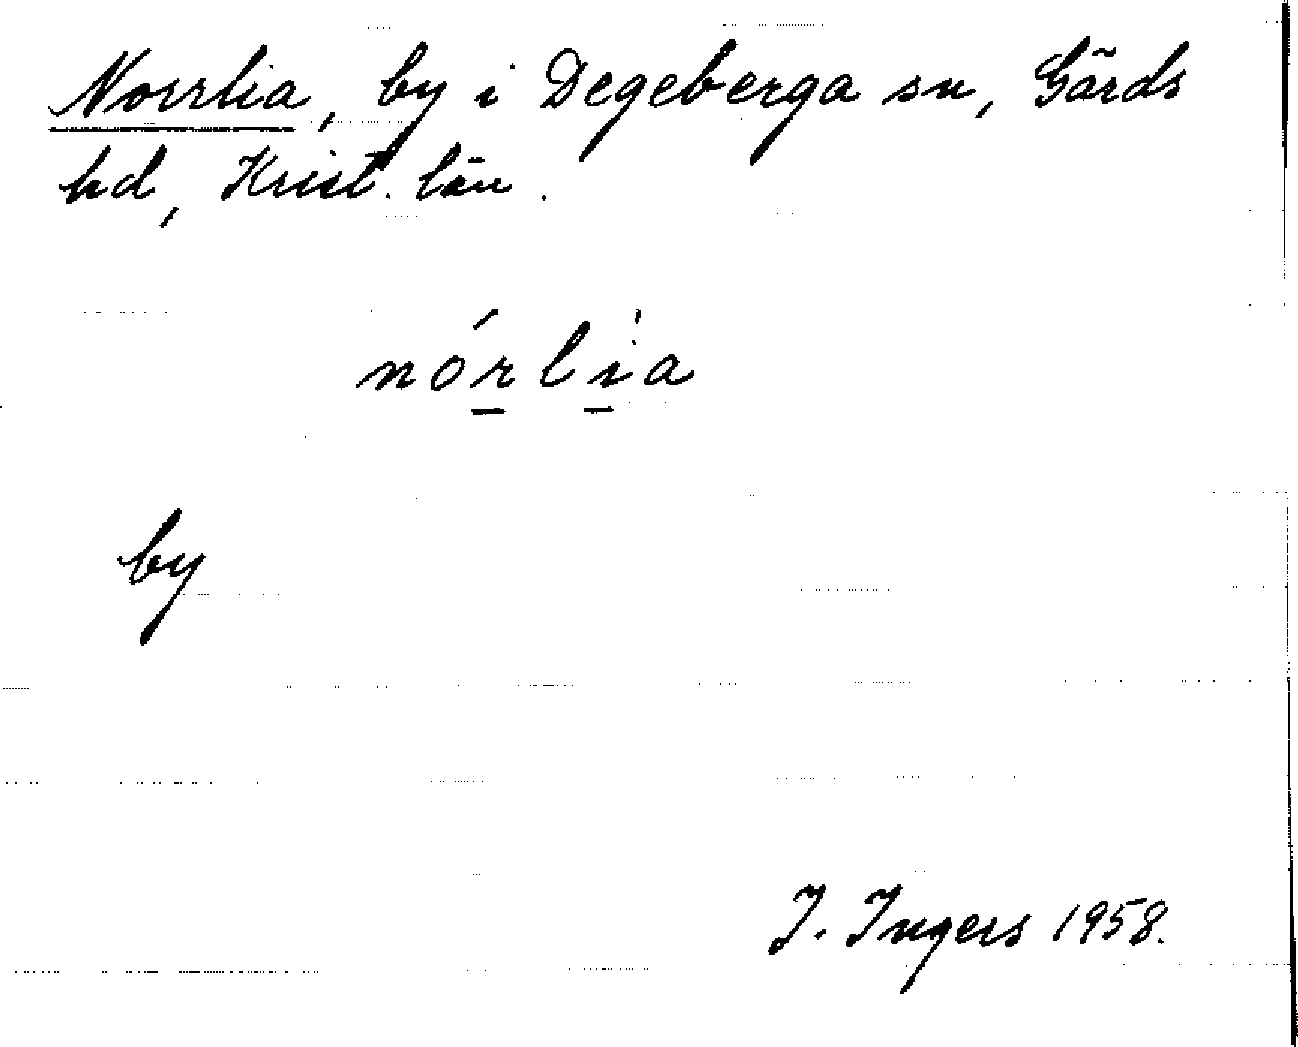 Norrlia, by i Degeberga sn, Gärds
hd, Krist. län.
nórlìa
by
I. Ingers 1958.